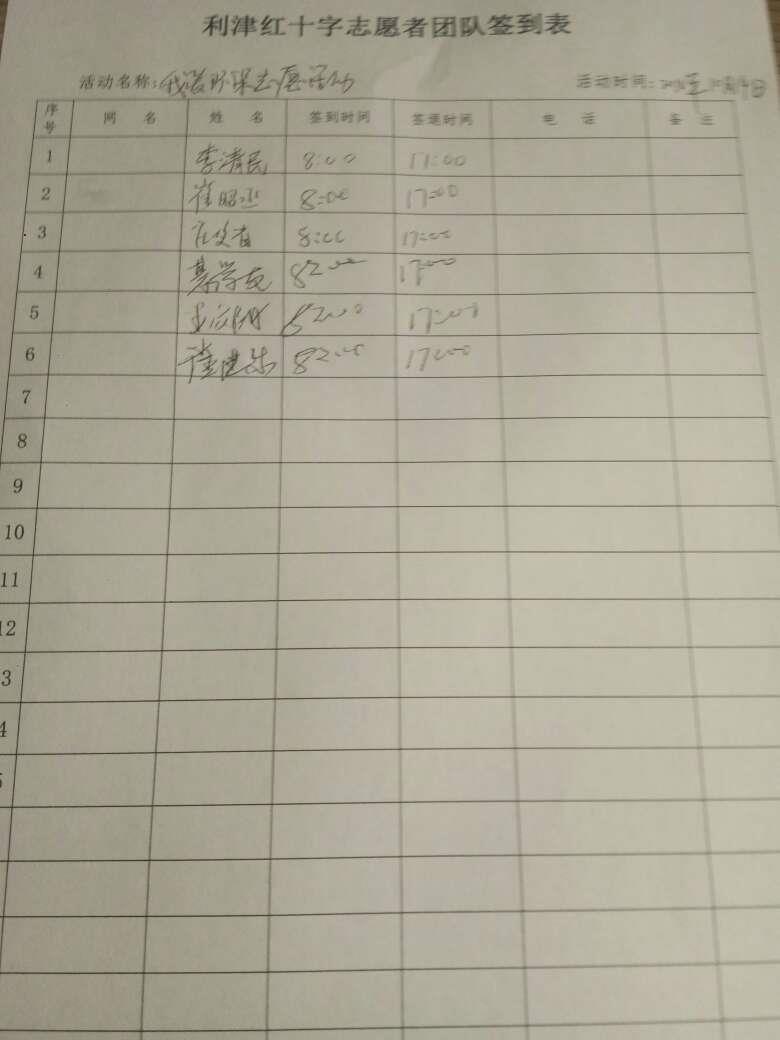 利津红十字志愿者团队签到表
活动名称:我爱环保志愿活动 活动时间: 年 月 日
序号 网 名 姓 名 签到时间 签退时间 电 话 备 注
1 李清民 8:00 17:00
2 崔昭 8:00 17:00
3 8:00 17:00
4 8:00 17:00
5 8:00 17:00
6 崔建 8:00 17:00
7
8
9
10
11
12
3
4
5